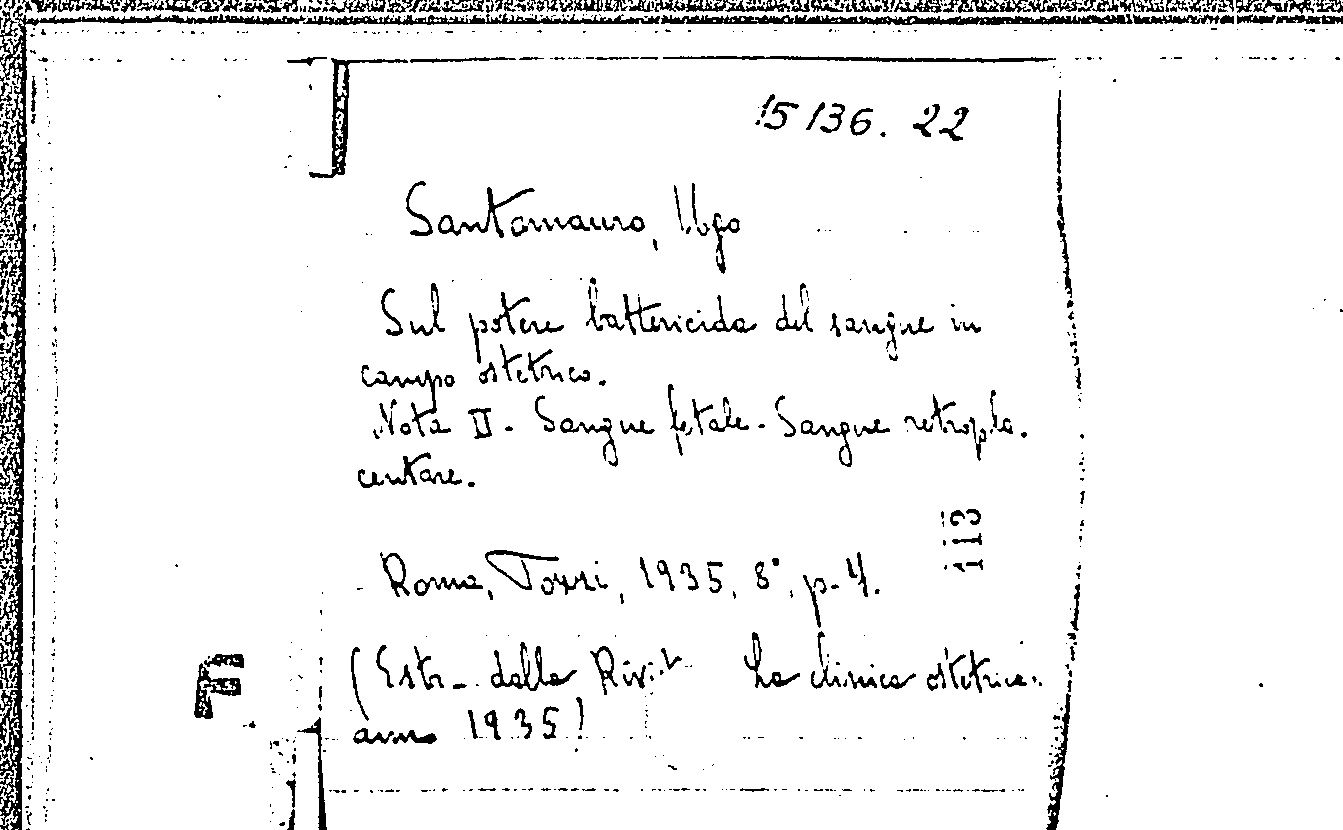 15136. 22
Santomauro, Ugo
Sul potere battericida del sangue in
campo ostetrico.
Nota II - Sangue fetale - Sangue retropla-
centare.
113
Roma, Tozzi, 1935, 8°, p. 4.
(Estr. dalla Rivist La clinica ostetrica.
anno 1935)
F